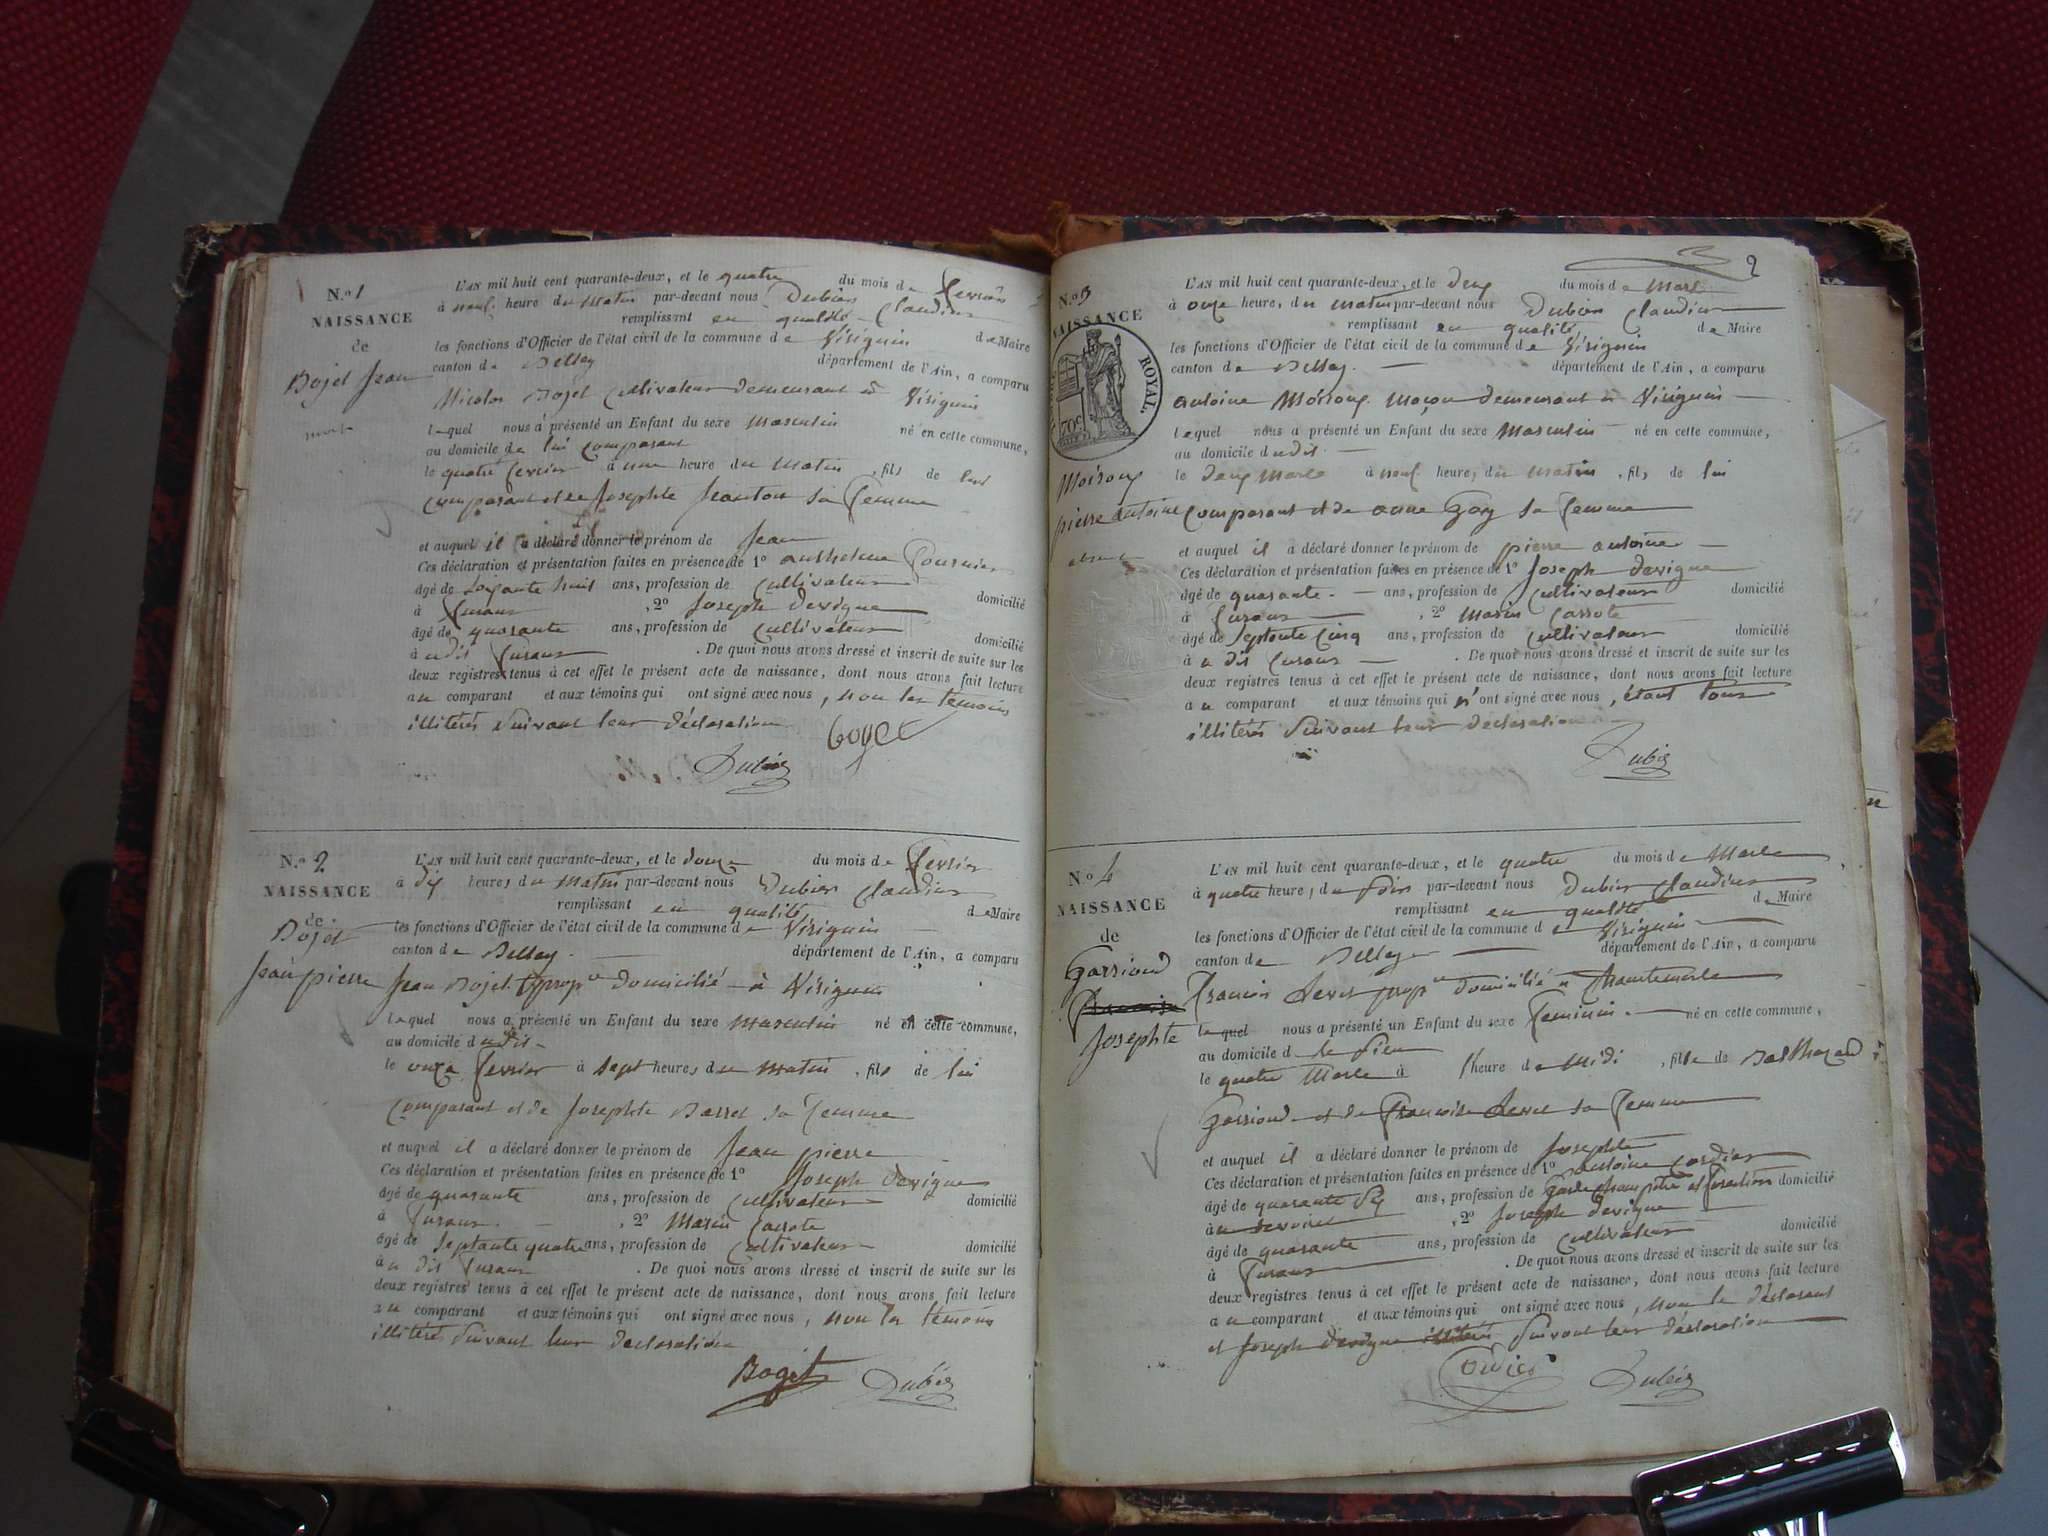 N.o 1
NAISSANCE
de
Bojet Jean
mort
L'AN mil huit cent quarante-deux, et le quatre du mois de fevrier
à neuf heure du matin par-devant nous Dubier Claudius
remplissant en qualité de Maire
les fonctions d'Officier de l'état civil de la commune de Virignin
canton de Belley département de l'Ain, a comparu
Nicolas Bojet Cultivateur demeurant à Virignin
lequel nous a présenté un Enfant du sexe masculin né en cette commune,
au domicile de lui comparant
le quatre fevrier à une heure du matin, fils de lui
comparant et de Josephte Jeanton sa femme
et auquel il a déclaré donner le prénom de Jean
Ces déclaration et présentation faites en présence de 1o anthelme fournier
âgé de soixante huit ans, profession de Cultivateur domicilié
à , 2o Joseph devigne
âgé de quarante ans, profession de Cultivateur domicilié
à u dit . De quoi nous avons dressé et inscrit de suite sur les
deux registres tenus à cet effet le présent acte de naissance, dont nous avons fait lecture
au comparant et aux témoins qui ont signé avec nous, non les temoins
illitérés suivant leur déclaration
boget
Dubier
N.o 2
NAISSANCE
de
Bojet
Jean pierre
L'AN mil huit cent quarante-deux, et le douze du mois de fevrier
à dix heures du matin par-devant nous Dubier Claudius
remplissant en qualité de Maire
les fonctions d'Officier de l'état civil de la commune de Virignin
canton de Belley. département de l'Ain, a comparu
Jean Bojet propre domicilié à Virignin
lequel nous a présenté un Enfant du sexe masculin né en cette commune,
au domicile dudit
le onze fevrier à sept heures du matin, fils de lui
comparant et de Josephte Barret sa femme
et auquel il a déclaré donner le prénom de Jean pierre
Ces déclaration et présentation faites en présence de 1o Joseph devigne
âgé de quarante ans, profession de Cultivateur domicilié
à , 2o Marin Carrote
âgé de septante quatre ans, profession de Cultivateur domicilié
à u dit . De quoi nous avons dressé et inscrit de suite sur les
deux registres tenus à cet effet le présent acte de naissance, dont nous avons fait lecture
au comparant et aux témoins qui ont signé avec nous, non les témoins
illitérés suivant leur declaration
Boget Dubier
2
N.o 3
NAISSANCE
ROYAL.
70c.
Moiroux
pierre antoine
absent
L'AN mil huit cent quarante-deux, et le deux du mois de mars
à onze heure, du matin par-devant nous Dubier Claudius
remplissant en qualité de Maire
les fonctions d'Officier de l'état civil de la commune de Virignin
canton de Belley. département de l'Ain, a comparu
antoine Moiroux maçon demeurant à Virignin
lequel nous a présenté un Enfant du sexe masculin né en cette commune,
au domicile dudit
le deux mars à neuf heure, du matin, fils de lui
comparant et de anne Goy sa femme
et auquel il a déclaré donner le prénom de pierre antoine
Ces déclaration et présentation faites en présence de 1o Joseph devigne
âgé de quarante ans, profession de cultivateur domicilié
à , 2o Marin Carrote
âgé de septante cinq ans, profession de cultivateur domicilié
à u dit . De quoi nous avons dressé et inscrit de suite sur les
deux registres tenus à cet effet le présent acte de naissance, dont nous avons fait lecture
au comparant et aux témoins qui n'ont signé avec nous, étant tous
illitérés suivant leur declaration
Dubier
No 4
NAISSANCE
de
Garrioud
Josephte
L'AN mil huit cent quarante-deux, et le quatre du mois de Mars
à quatre heure, du soir par-devant nous Dubier Claudius
remplissant en qualité de Maire
les fonctions d'Officier de l'état civil de la commune de Virignin
canton de Belley département de l'Ain, a comparu
francois propre domicilié à
lequel nous a présenté un Enfant du sexe feminin. né en cette commune,
au domicile d
le quatre Mars à l'heure de midi, fille de Balthazard
Garrioud et de francoise sa femme
et auquel il a déclaré donner le prénom de Josephte
Ces déclaration et présentation faites en présence de 1o antoine cordier
âgé de quarante six ans, profession de Garde champêtre et forestier domicilié
à , 2o Joseph devigne
âgé de quarante ans, profession de Cultivateur domicilié
à . De quoi nous avons dressé et inscrit de suite sur les
deux registres tenus à cet effet le présent acte de naissance, dont nous avons fait lecture
au comparant et aux témoins qui ont signé avec nous, non le déclarant
et Joseph devigne illitérés suivant leur déclaration
Cordier Dubier